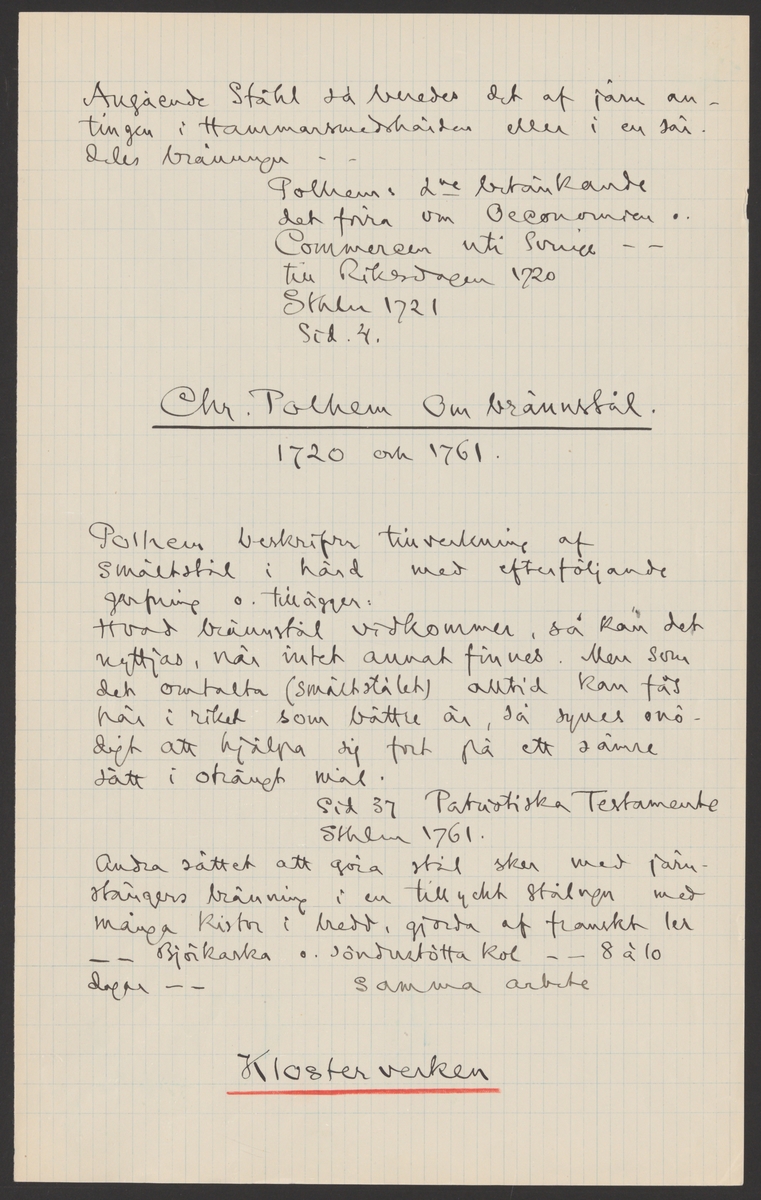 Angående Stål så beredes det af järn an-
tingen i Hammarsmedshärden eller i en sär-
deles bränungn - -
Polhems 2ne betänkande
det förra om Oeconomien o.
Commercen uti Sverige - -
till Riksdagen 1720
Sthlm 1721
Sid. 4.
Chr. Polhem Om brännstål.
1720 och 1761.
Polhem beskrifver tillverkning af
Smältstål i härd med efterföljande
garfning o. tillägger:
Hvad brännstål vidkommer, så kan det
nyttjas, när intet annat finnes. Men som
det omtalta (smältstålet) alltid kan fås
här i riket som bättre är, så synes onö-
digt att hjälpa sig fort på ett sämre
sätt i oträngt mål.
Sid 37 Patriotiska Testamente
Sthlm 1761.
Andra sättet att göra stål sker med järn-
stängers bränning i en tillyckt Stålugn med
många kistor i bredd, gjorda af franskt ler
- - Björkaska o. söndustötta kol - - 8 à 10
dagar - - Samma arbete
Klosterverken